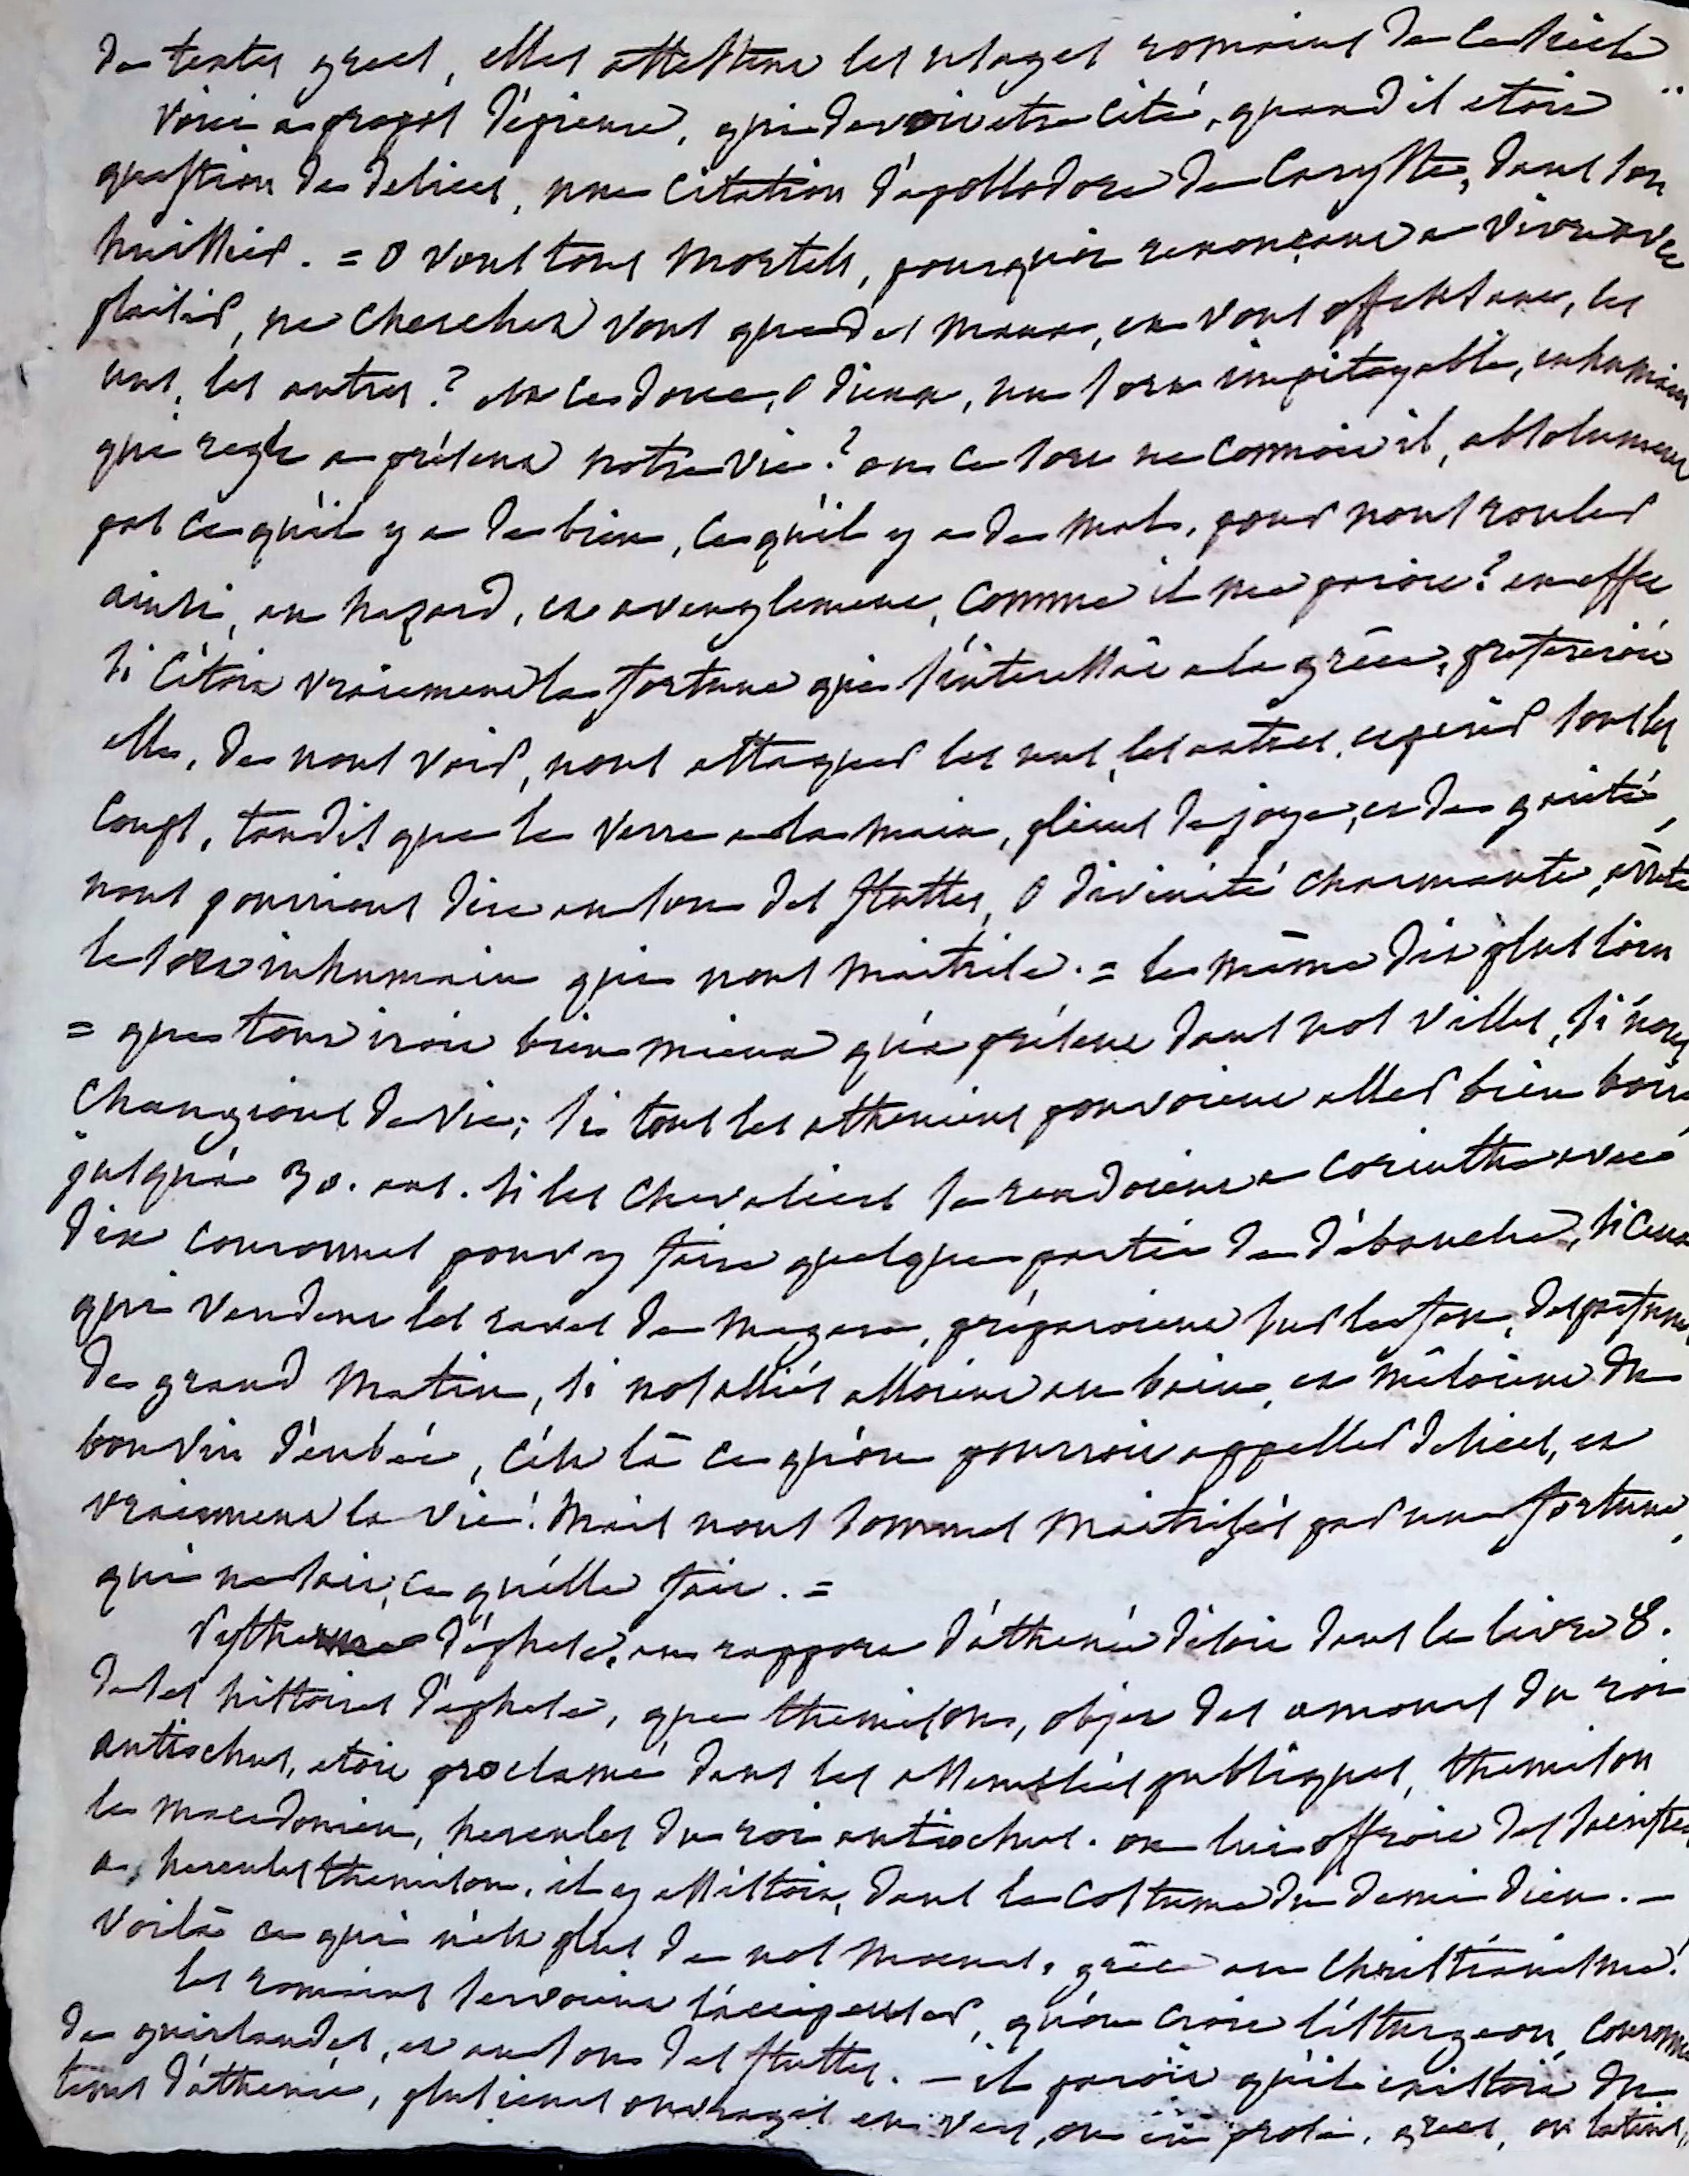 de textes grecs, elles attestent les usages romains de ce siecle
voici a propos d'épicure, qui devoit etre cité, quand il etoit
question de delices, une citation d'apollodore de Caryste, dans son
huissier. = O vous tous mortels, pourquoi renonçant a vivre avec
plaisir, ne cherchez vous que des maux, en vous offensant, les
uns, les autres? est ce donc, o dieux, un sort impitoyable, inhumain
qui regle a présent notre vie? ou ce sort ne connoit il, absolument
pas ce qu'il y a de bien, ce qu'il y a de mal, pour nous rouler
ainsi, au hazard, et aveuglement, comme il me paroit? en effet
si c'étoit vraiement la fortune qui s'interessât a la grèce, prefereroit
elle, de nous voir, nous attaquer les uns, les autres, et perir sous les
coups, tandis que le verre a la main, pleins de joye, et de gaieté,
nous pourrions dire au son des fluttes, O divinité charmante, arrete
le sort inhumain qui nous maitrise. = le même dit plus loin
= que tout iroit bien mieux qu'a présent dans nos villes, si nous
changions de vie; si tous les atheniens pouvoient aller bien boire
jusqu'a 30. ans. si les chevaliers se rendoient a corinthe avec
dix couronnes pour y faire quelque partie de débauche; si ceux
qui vendent les raves de megare, préparoient sur le feu, des parfums
de grand matin, si nos alliés alloient au bain, et mêloient du
bon vin d'eubée, c'est là ce qu'on pourroit appeller delices, et
vraiement la vie! mais nous sommes maitrisés par une fortune,
qui ne sait, ce qu'elle fait. =
Pytherme d'ephese, au rapport d'athenée disoit dans le livre 8.
de ses histoires d'ephese, que themison, objet des amours du roi
antiochus, etoit proclamé dans les assemblées publiques, themison
le macedonien, hercules du roi antiochus. on lui offroit des
a hercules themison, il y assistoit, dans le costume du demi dieu. —
voilà ce qui n'est plus de nos moeurs, grâce au christianisme!
les romains servoient l'accipenser, qu'on croit l'esturgeon, couronné
de guirlandes, et au son des fluttes. — il paroit qu'il existoit du
tems d'athenée, plusieurs ouvrages en vers, ou en prose, grecs, ou latins,